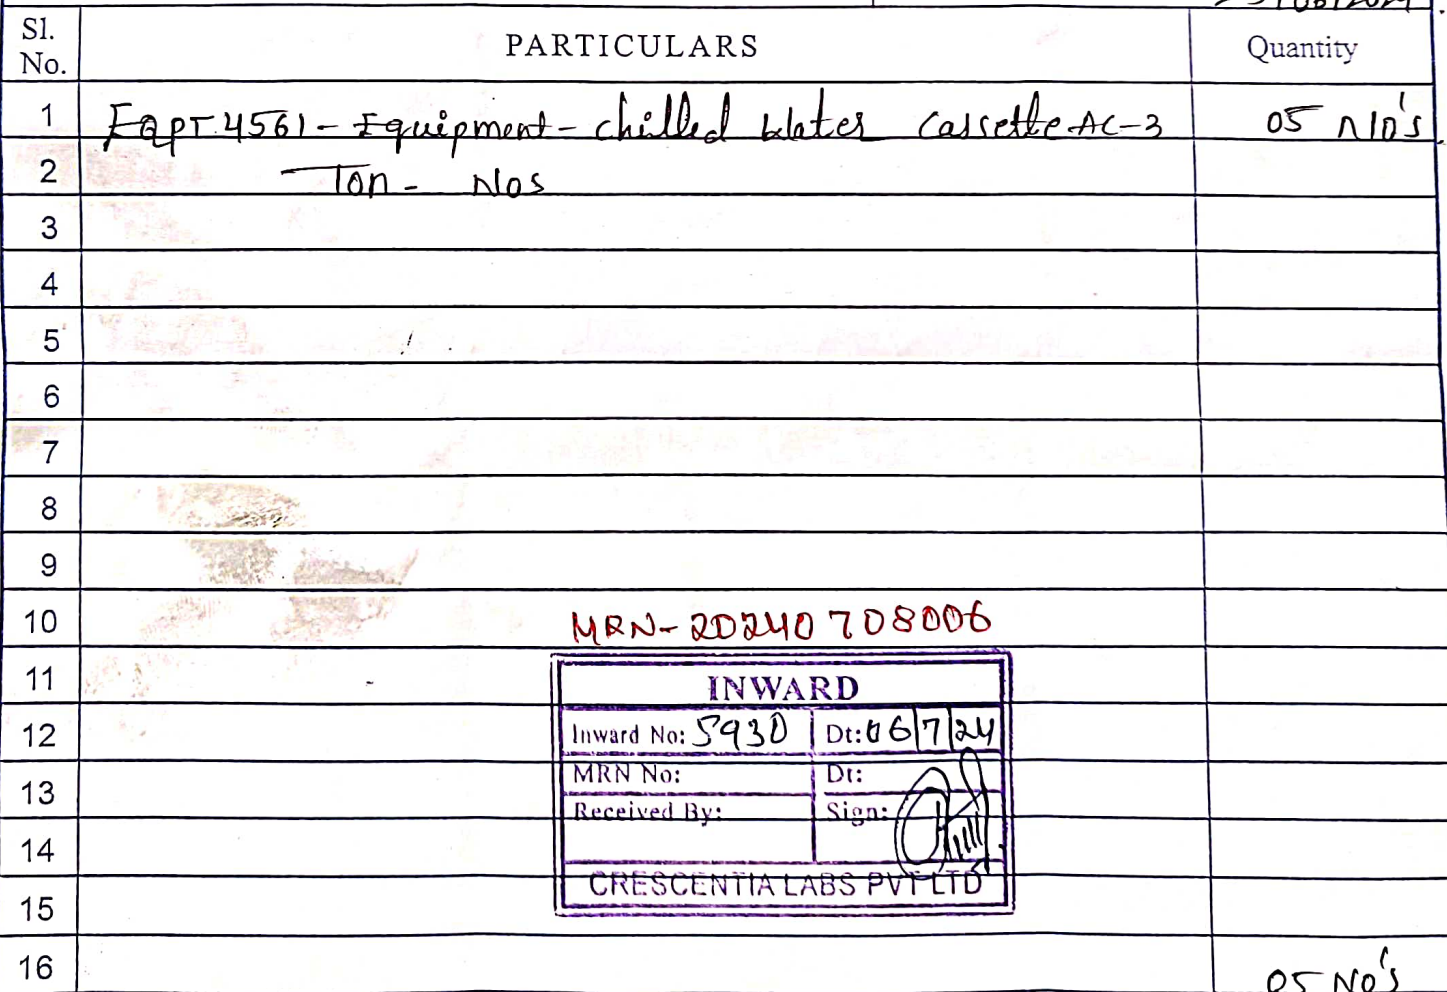 Sl. No. PARTICULARS Quantity
1 EQPT 4561 - Equipment - chilled Water Cassette AC-3 05 No's
2 Ton - Nos
3
4
5
6
7
8
9
10 MRN-20240708006
11 INWARD
12 Inward No: 5930 Dt: 06/7/24
13 MRN No: Dt:
Received By: Sign:
14
CRESCENTIA LABS PVT LTD
15
16 05 No's